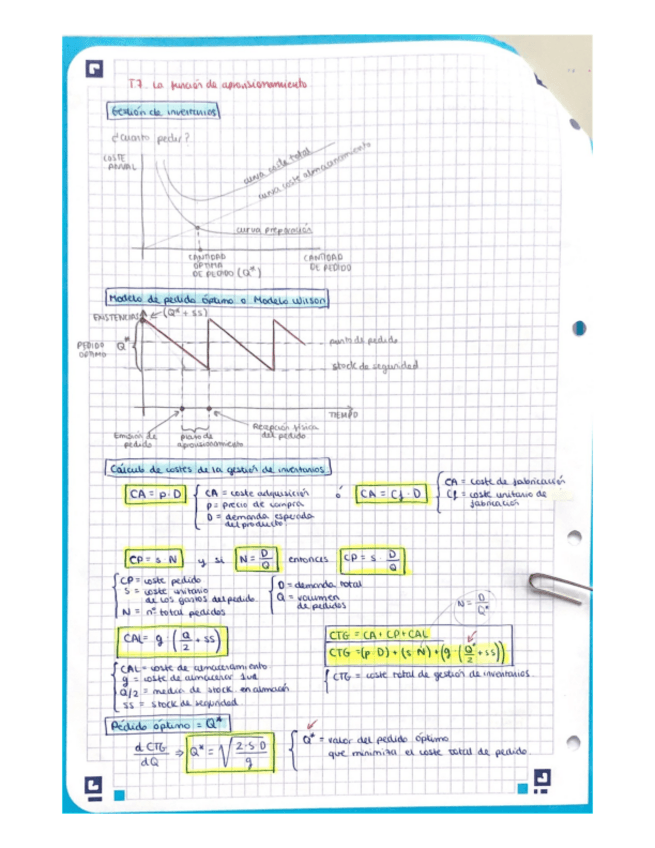 T.7. La función de aprovisionamiento
Gestión de inventarios
¿Cuanto pedir?
COSTE
ANUAL
curva coste total
curva coste almacenamiento
curva preparación
CANTIDAD
ÓPTIMA
DE PEDIDO (Q*)
CANTIDAD
DE PEDIDO
Modelo de pedido óptimo o Modelo Wilson
EXISTENCIAS
(Q* + SS)
PEDIDO
OPTIMO
Q*
punto de pedido
stock de seguridad
TIEMPO
Emisión de
pedido
plazo de
aprovisionamiento
Recepción física
del pedido
Cálculo de costes de la gestión de inventarios
CA = p · D
CA = coste adquisición
p = precio de compra
D = demanda esperada
del producto
ó
CA = Cf · D
CA = coste de fabricación
Cf = coste unitario de
fabricación
CP = s · N
y si
N = D/Q
entonces
CP = s · D/Q
CP = coste pedido
S = coste unitario
de los gastos del pedido
N = nº total pedidos
D = demanda total
Q = volumen
de pedidos
N = D/Q*
CAL = g · (Q/2 + SS)
CTG = CA + CP + CAL
CTG = (p · D) + (s · N) + (g · (Q*/2 + SS))
CAL = coste de almacenamiento
g = coste de almacenar 1ud
Q/2 = media de stock en almacén
SS = stock de seguridad
CTG = coste total de gestión de inventarios.
Pedido óptimo = Q*
d CTG/dQ ⇒ Q* = √(2·S·D/g)
Q* = valor del pedido óptimo
que minimiza el coste total de pedido.